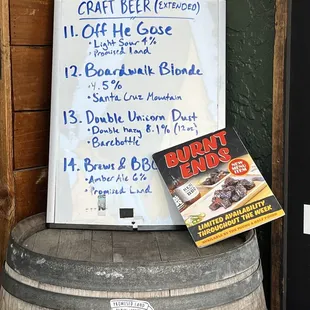 CRAFT BEER (EXTENDED)
11. Off He Gose
• Light Sour 4%
• Promised Land
12. Boardwalk Blonde
• 4.5%
• Santa Cruz Mountain
13. Double Unicorn Dust
• Double hazy 8.1% (12oz)
• Barebottle
14. Brews & BBQ
• Amber Ale 6%
• Promised Land
BURNT
ENDS
NEW
MENU
ITEM
LIMITED AVAILABILITY
THROUGHOUT THE WEEK
PROMISED LAND